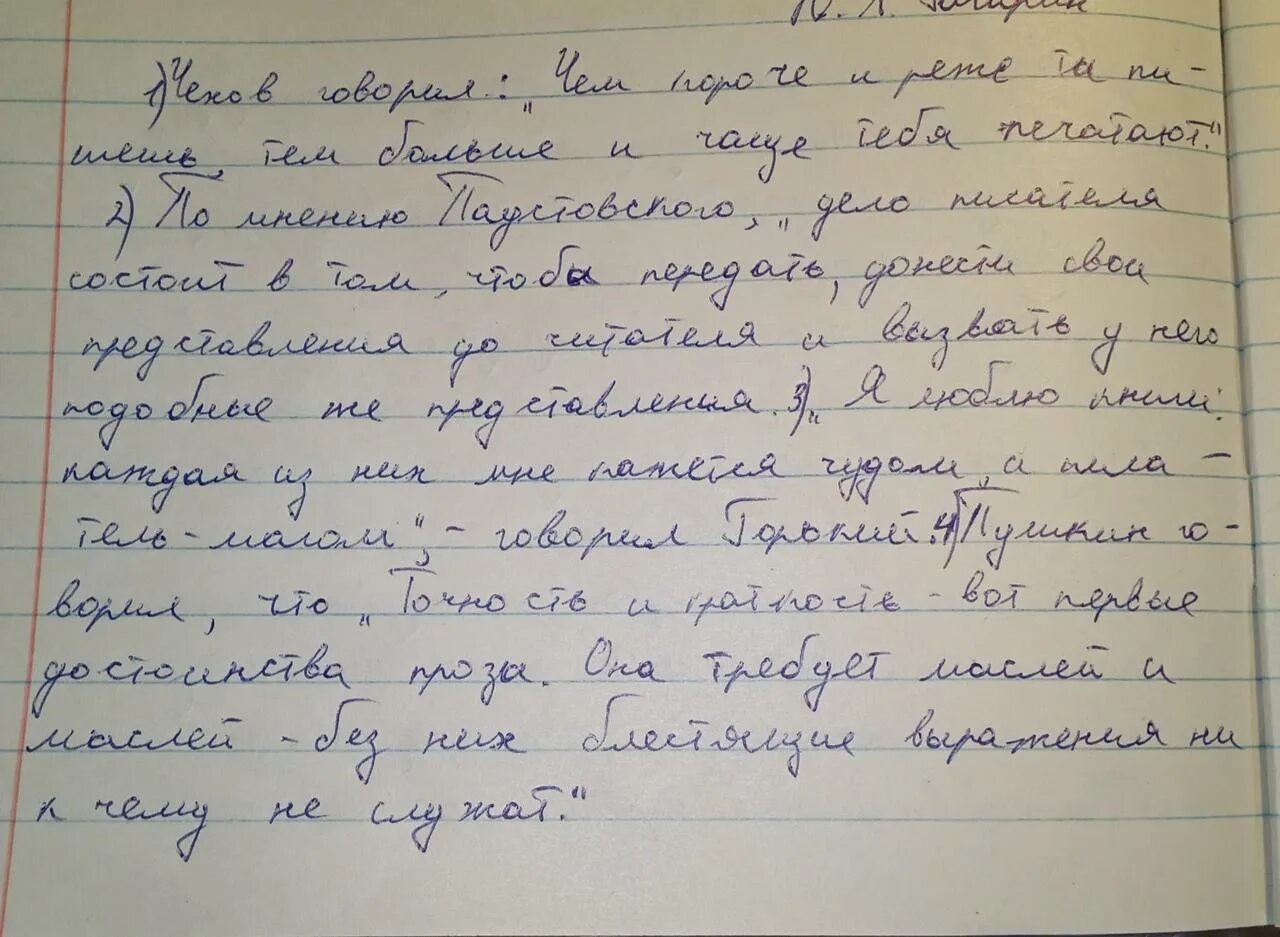 Ю. А. Гагарин
1) Чехов говорил: „Чем короче и реже ты пи-
шешь, тем больше и чаще тебя печатают."
2) По мнению Паустовского, „дело писателя
состоит в том, чтобы передать, донести свои
представления до читателя и вызвать у него
подобные же представления. 3) „Я люблю книги:
каждая из них мне кажется чудом, а писа-
тель-магом", - говорил Горький. 4) Пушкин го-
ворил, что „Точность и краткость - вот первые
достоинства проза. Она требует мыслей и
мыслей - без них блестящие выражения ни
к чему не служат."